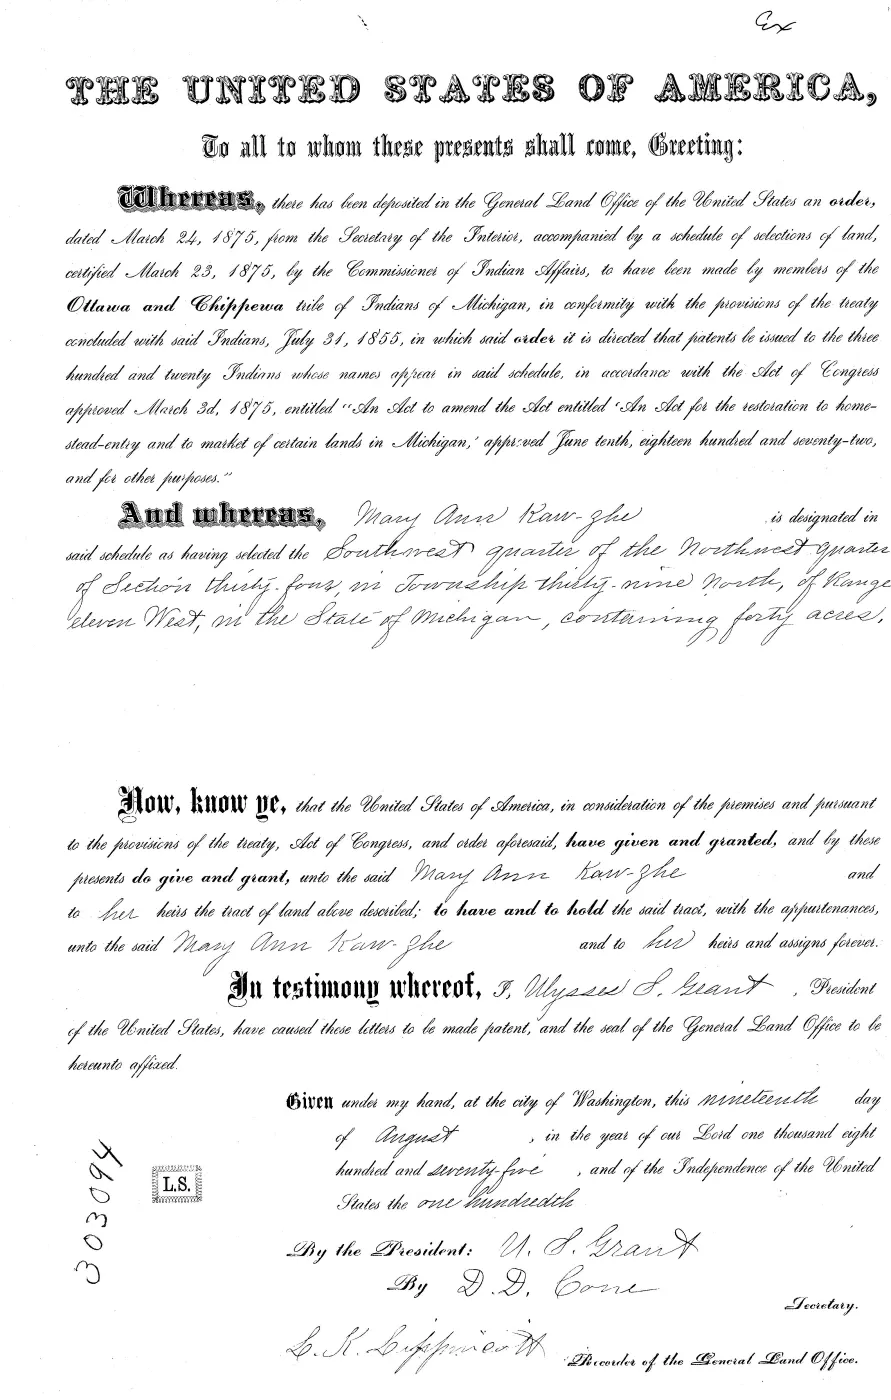 Ex
THE UNITED STATES OF AMERICA,
To all to whom these presents shall come, Greeting:
Whereas, there has been deposited in the General Land Office of the United States an order,
dated March 24, 1875, from the Secretary of the Interior, accompanied by a schedule of selections of land,
certified March 23, 1875, by the Commissioner of Indian Affairs, to have been made by members of the
Ottawa and Chippewa tribe of Indians of Michigan, in conformity with the provisions of the treaty
concluded with said Indians, July 31, 1855, in which said order it is directed that patents be issued to the three
hundred and twenty Indians whose names appear in said schedule, in accordance with the Act of Congress
approved March 3d, 1875, entitled "An Act to amend the Act entitled 'An Act for the restoration to home-
stead-entry and to market of certain lands in Michigan,' approved June tenth, eighteen hundred and seventy-two,
and for other purposes."
And whereas, Mary Ann Kaw-zhe is designated in
said schedule as having selected the Southwest quarter of the Northwest quarter
of Section thirty-four, in Township thirty-nine North, of Range
eleven West, in the State of Michigan, containing forty acres.
Now, know ye, that the United States of America, in consideration of the premises and pursuant
to the provisions of the treaty, Act of Congress, and order aforesaid, have given and granted, and by these
presents do give and grant, unto the said Mary Ann Kaw-zhe and
to her heirs the tract of land above described; to have and to hold the said tract, with the appurtenances,
unto the said Mary Ann Kaw-zhe and to her heirs and assigns forever.
In testimony whereof, I, Ulysses S. Grant, President
of the United States, have caused these letters to be made patent, and the seal of the General Land Office to be
hereunto affixed.
Given under my hand, at the city of Washington, this nineteenth day
of August, in the year of our Lord one thousand eight
hundred and seventy-five, and of the Independence of the United
States the one hundredth
L.S.
303094
By the President: U. S. Grant
By D. D. Cone
Secretary.
L. K. Lippincott
Recorder of the General Land Office.